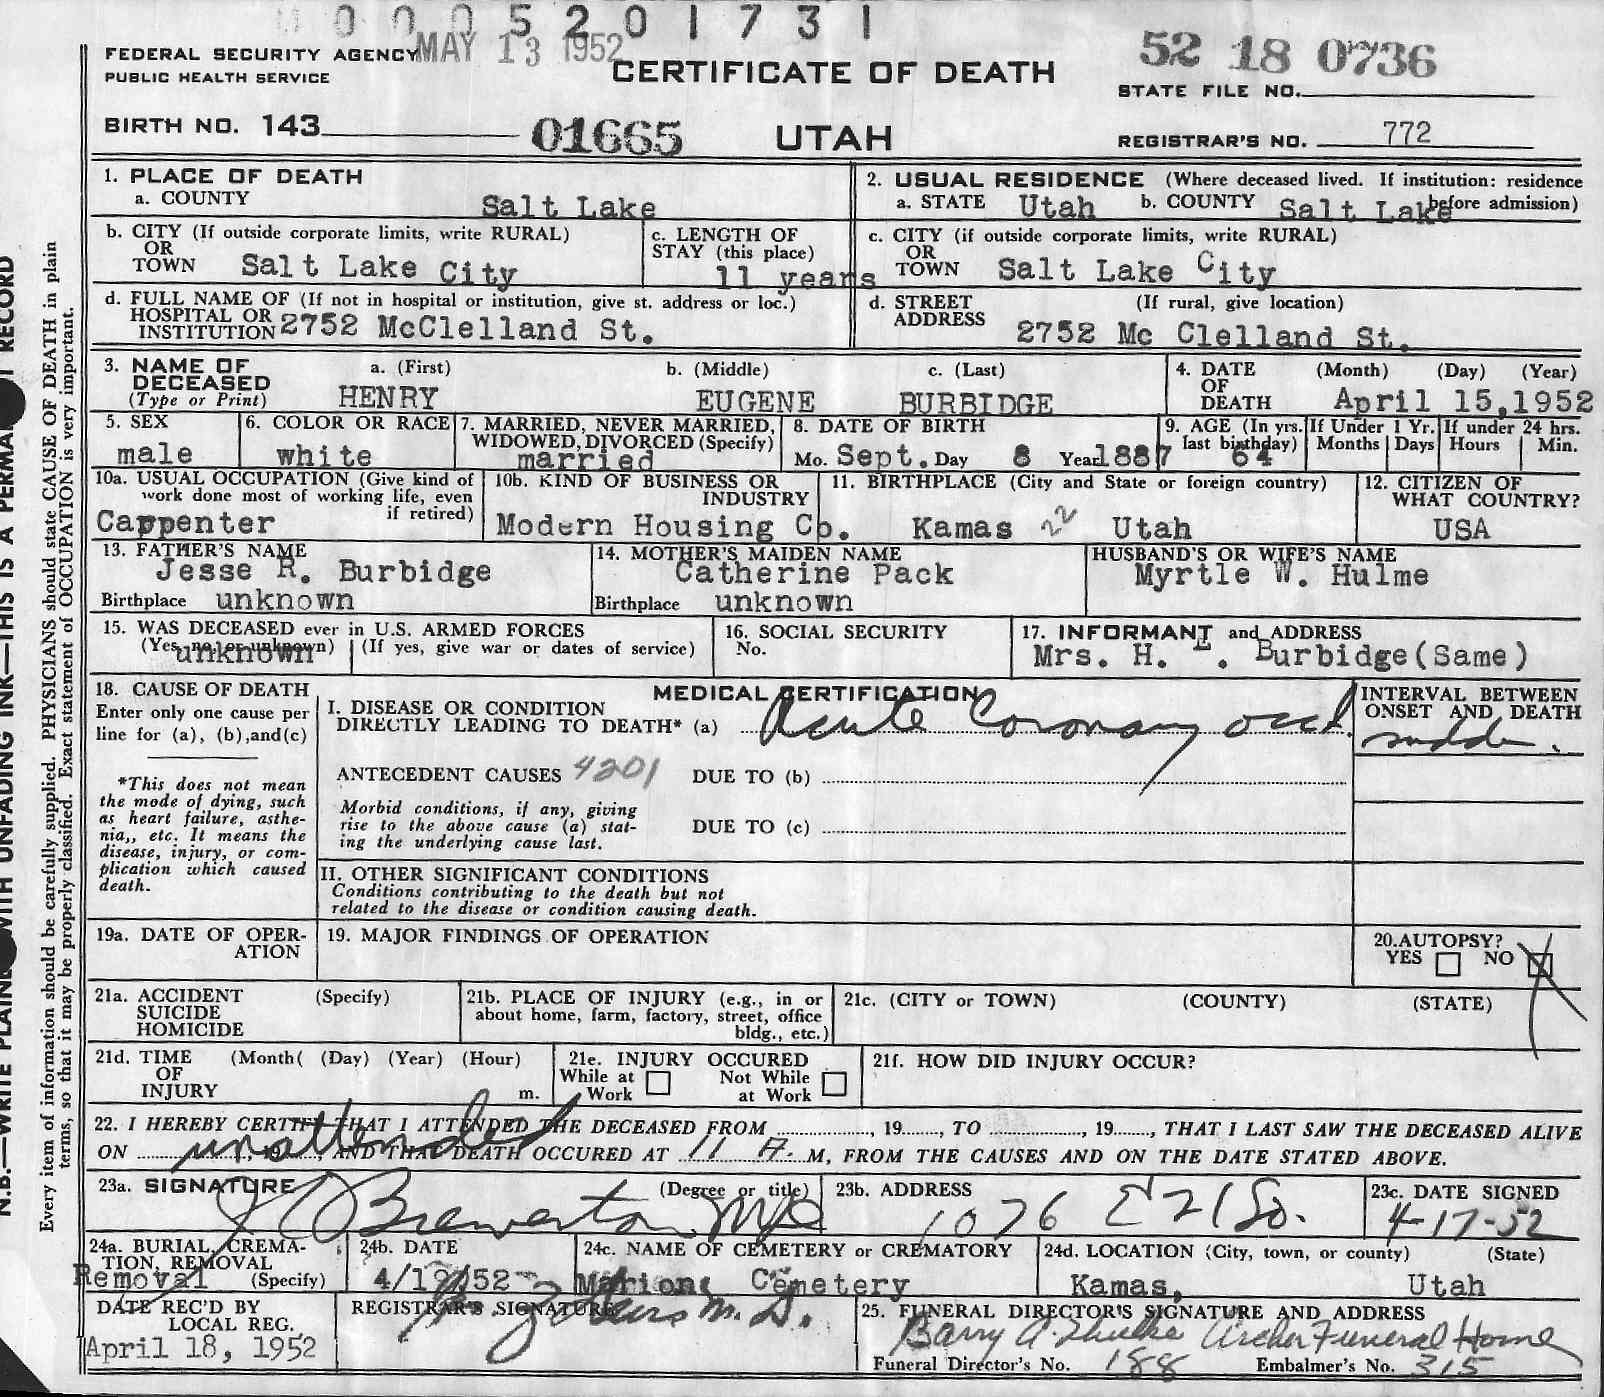 0 0 0 5 2 0 1 7 3 1
FEDERAL SECURITY AGENCY MAY 13 1952
PUBLIC HEALTH SERVICE
CERTIFICATE OF DEATH
52 18 0736
STATE FILE NO.
BIRTH NO. 143 01665 UTAH
REGISTRAR'S NO. 772
1. PLACE OF DEATH
a. COUNTY Salt Lake
2. USUAL RESIDENCE (Where deceased lived. If institution: residence before admission)
a. STATE Utah b. COUNTY Salt Lake
b. CITY (If outside corporate limits, write RURAL)
OR
TOWN Salt Lake City
c. LENGTH OF
STAY (this place)
11 years
c. CITY (if outside corporate limits, write RURAL)
OR
TOWN Salt Lake City
d. FULL NAME OF (If not in hospital or institution, give st. address or loc.)
HOSPITAL OR
INSTITUTION 2752 McClelland St.
d. STREET (If rural, give location)
ADDRESS 2752 Mc Clelland St.
3. NAME OF a. (First) b. (Middle) c. (Last)
DECEASED
(Type or Print) HENRY EUGENE BURBIDGE
4. DATE (Month) (Day) (Year)
OF
DEATH April 15,1952
5. SEX
male
6. COLOR OR RACE
white
7. MARRIED, NEVER MARRIED,
WIDOWED, DIVORCED (Specify)
married
8. DATE OF BIRTH
Mo. Sept. Day 8 Year 1887
9. AGE (In yrs.
last birthday) 64
If Under 1 Yr.
Months Days
If under 24 hrs.
Hours Min.
10a. USUAL OCCUPATION (Give kind of
work done most of working life, even
if retired)
Carpenter
10b. KIND OF BUSINESS OR
INDUSTRY
Modern Housing Co.
11. BIRTHPLACE (City and State or foreign country)
Kamas 22 Utah
12. CITIZEN OF
WHAT COUNTRY?
USA
13. FATHER'S NAME
Jesse R. Burbidge
Birthplace unknown
14. MOTHER'S MAIDEN NAME
Catherine Pack
Birthplace unknown
HUSBAND'S OR WIFE'S NAME
Myrtle W. Hulme
15. WAS DECEASED ever in U.S. ARMED FORCES
(Yes, no, or unknown) (If yes, give war or dates of service)
unknown
16. SOCIAL SECURITY
No.
17. INFORMANT and ADDRESS
Mrs. H. E. Burbidge(Same)
18. CAUSE OF DEATH
Enter only one cause per
line for (a), (b),and(c)
*This does not mean
the mode of dying, such
as heart failure, asthe-
nia,, etc. It means the
disease, injury, or com-
plication which caused
death.
MEDICAL CERTIFICATION
I. DISEASE OR CONDITION
DIRECTLY LEADING TO DEATH* (a) Acute Coronary occl.
INTERVAL BETWEEN
ONSET AND DEATH
sudden.
ANTECEDENT CAUSES 4201 DUE TO (b)
Morbid conditions, if any, giving
rise to the above cause (a) stat-
ing the underlying cause last.
DUE TO (c)
II. OTHER SIGNIFICANT CONDITIONS
Conditions contributing to the death but not
related to the disease or condition causing death.
19a. DATE OF OPER-
ATION
19. MAJOR FINDINGS OF OPERATION
20.AUTOPSY?
YES NO X
21a. ACCIDENT (Specify)
SUICIDE
HOMICIDE
21b. PLACE OF INJURY (e.g., in or
about home, farm, factory, street, office
bldg., etc.)
21c. (CITY or TOWN) (COUNTY) (STATE)
21d. TIME (Month( (Day) (Year) (Hour)
OF
INJURY m.
21e. INJURY OCCURED
While at Work Not While at Work
21f. HOW DID INJURY OCCUR?
22. I HEREBY CERTIFY THAT I ATTENDED THE DECEASED FROM , 19 , TO , 19 , THAT I LAST SAW THE DECEASED ALIVE
ON unattended , 19 , AND THAT DEATH OCCURED AT 11 A. M, FROM THE CAUSES AND ON THE DATE STATED ABOVE.
23a. SIGNATURE (Degree or title)
Brewerton MD
23b. ADDRESS
1076 E 21 So.
23c. DATE SIGNED
4-17-52
24a. BURIAL, CREMA-
TION, REMOVAL
Removal (Specify)
24b. DATE
4/19/52
24c. NAME OF CEMETERY or CREMATORY
Marion Cemetery
24d. LOCATION (City, town, or county) (State)
Kamas, Utah
DATE REC'D BY
LOCAL REG.
April 18, 1952
REGISTRAR'S SIGNATURE
M. D.
25. FUNERAL DIRECTOR'S SIGNATURE AND ADDRESS
Barry A. Archer Funeral Home
Funeral Director's No. 188 Embalmer's No. 315
N.B.—WRITE PLAINLY WITH UNFADING INK—THIS IS A PERMA T RECORD
Every item of information should be carefully supplied. PHYSICIANS should state CAUSE OF DEATH in plain
terms, so that it may be properly classified. Exact statement of OCCUPATION is very important.